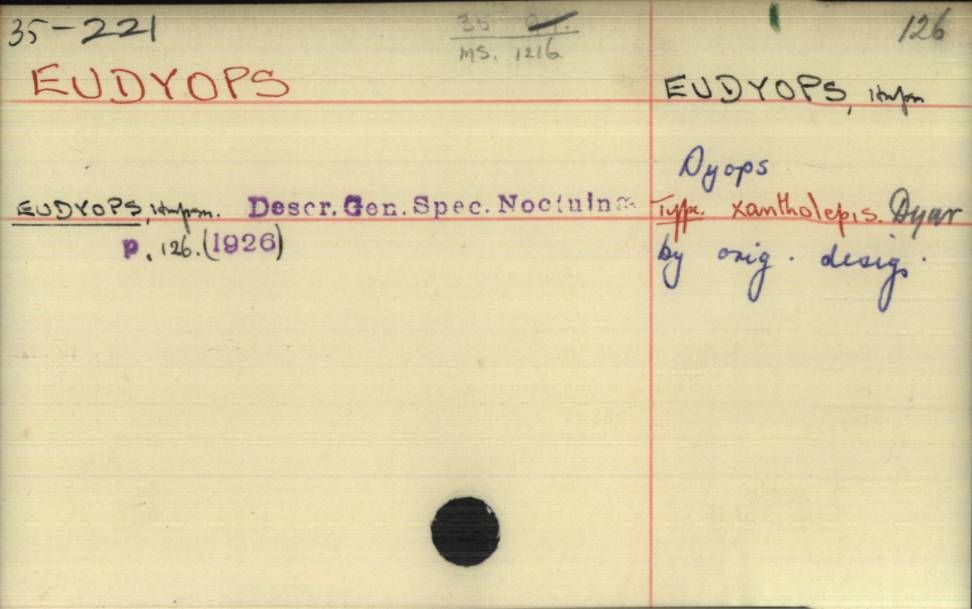 35-221
35
MS. 1216
126
EUDYOPS
EUDYOPS, Hmpsn
Dyops
EUDYOPS, Hmpsn. Descr. Gen. Spec. Noctuinæ
p. 126. (1926)
Type. xantholepis. Dyar
by orig. desig.